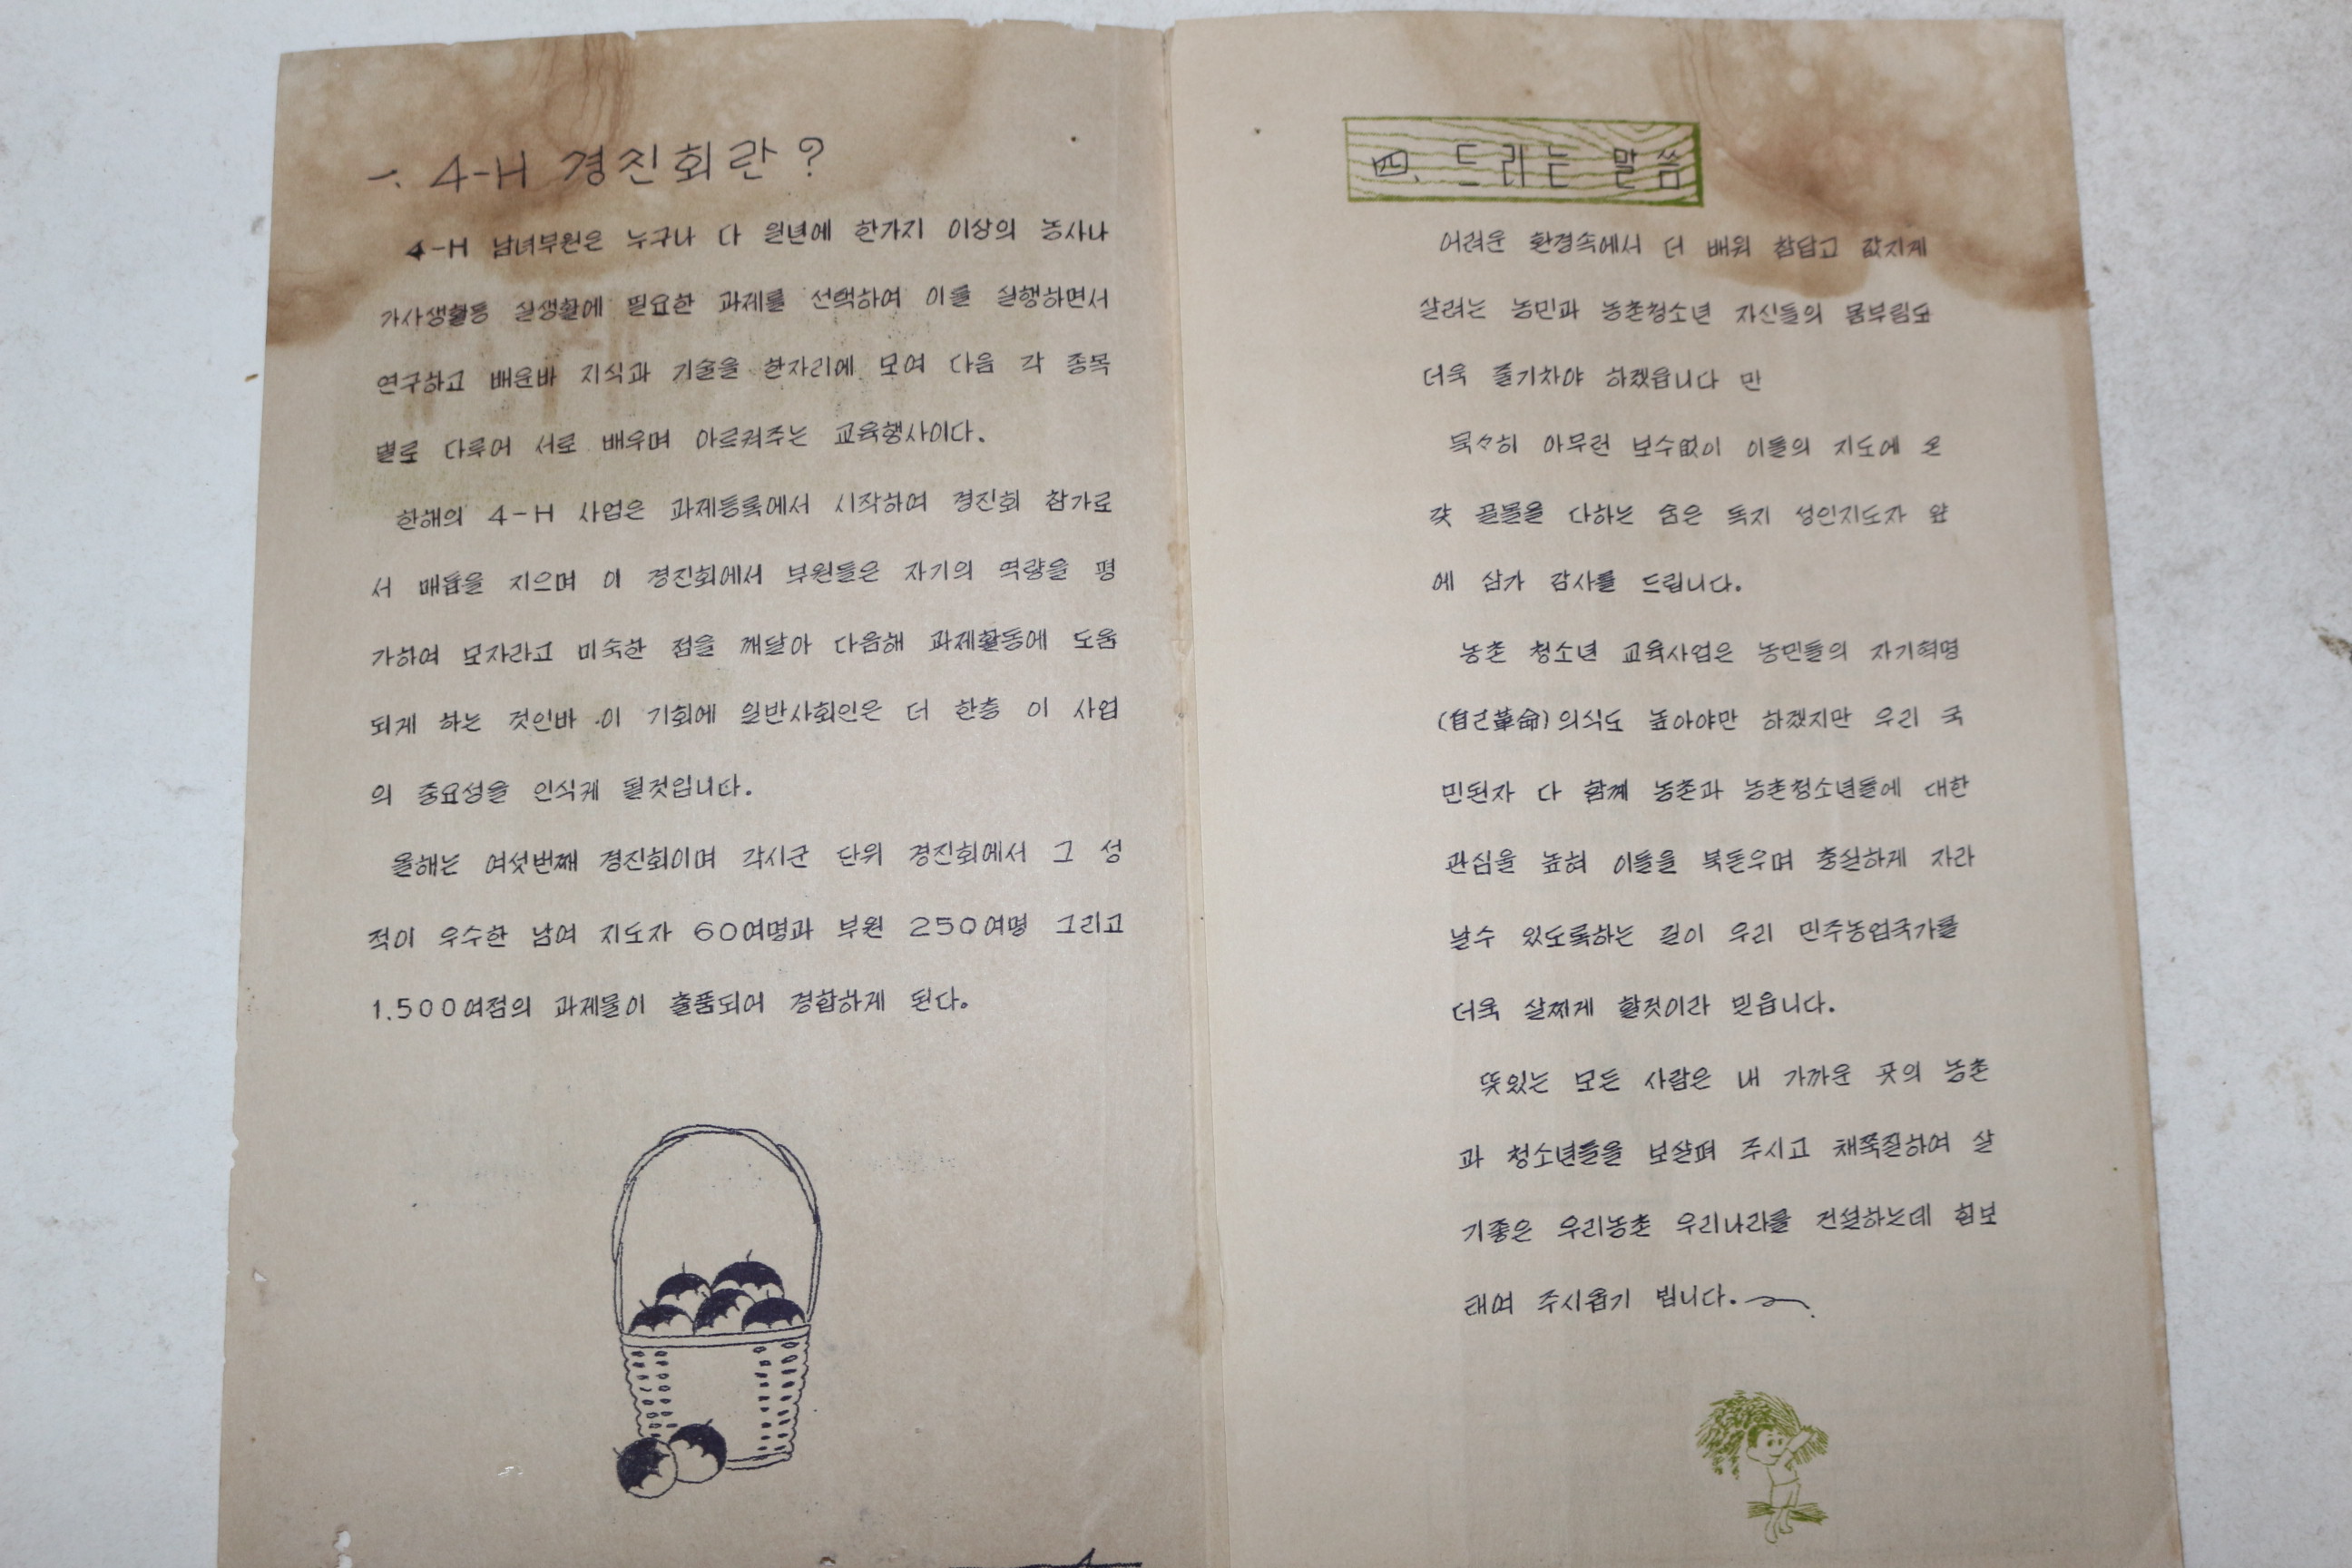 一. 4-H 경진회란?
4-H 남녀부원은 누구나 다 일년에 한가지 이상의 농사나
가사생활등 실생활에 필요한 과제를 선택하여 이를 실행하면서
연구하고 배운바 지식과 기술을 한자리에 모여 다음 각 종목
별로 다루어 서로 배우며 아르켜주는 교육행사이다.
한해의 4-H 사업은 과제등록에서 시작하여 경진회 참가로
서 매듭을 지으며 이 경진회에서 부원들은 자기의 역량을 평
가하여 모자라고 미숙한 점을 깨달아 다음해 과제활동에 도움
되게 하는 것인바 이 기회에 일반사회인은 더 한층 이 사업
의 중요성을 인식케 될것입니다.
올해는 여섯번째 경진회이며 각시군 단위 경진회에서 그 성
적이 우수한 남여 지도자 60여명과 부원 250여명 그리고
1.500여점의 과제물이 출품되어 경합하게 된다.
四. 드리는 말씀
어려운 환경속에서 더 배워 참답고 값지게
살려는 농민과 농촌청소년 자신들의 몸부림도
더욱 줄기차야 하겠읍니다 만
묵々히 아무런 보수없이 이들의 지도에 온
갖 끝몰을 다하는 숨은 독지 성인지도자 앞
에 삼가 감사를 드립니다.
농촌 청소년 교육사업은 농민들의 자기혁명
(自己革命)의식도 높아야만 하겠지만 우리 국
민된자 다 함께 농촌과 농촌청소년들에 대한
관심을 높혀 이들을 북돋우며 충실하게 자라
날수 있도록하는 길이 우리 민주농업국가를
더욱 살찌게 할것이라 믿읍니다.
뜻있는 모든 사람은 내 가까운 곳의 농촌
과 청소년들을 보살펴 주시고 채찍질하여 살
기좋은 우리농촌 우리나라를 건설하는데 힘보
태여 주시옵기 빕니다.